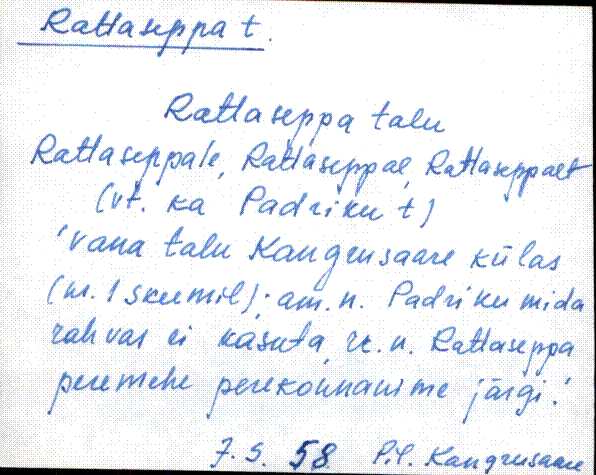 Rattaseppa t.
Rattaseppa talu
Rattaseppale, Rattaseppal, Rattaseppalt
(vt. ka Padriku t)
'vana talu Kangrusaare külas
am. n. Padriku mida
rahvas ei kasuta, rk. n. Rattaseppa
peremehe perekonnanime järgi.'
58 P.-P. Kangrusaare